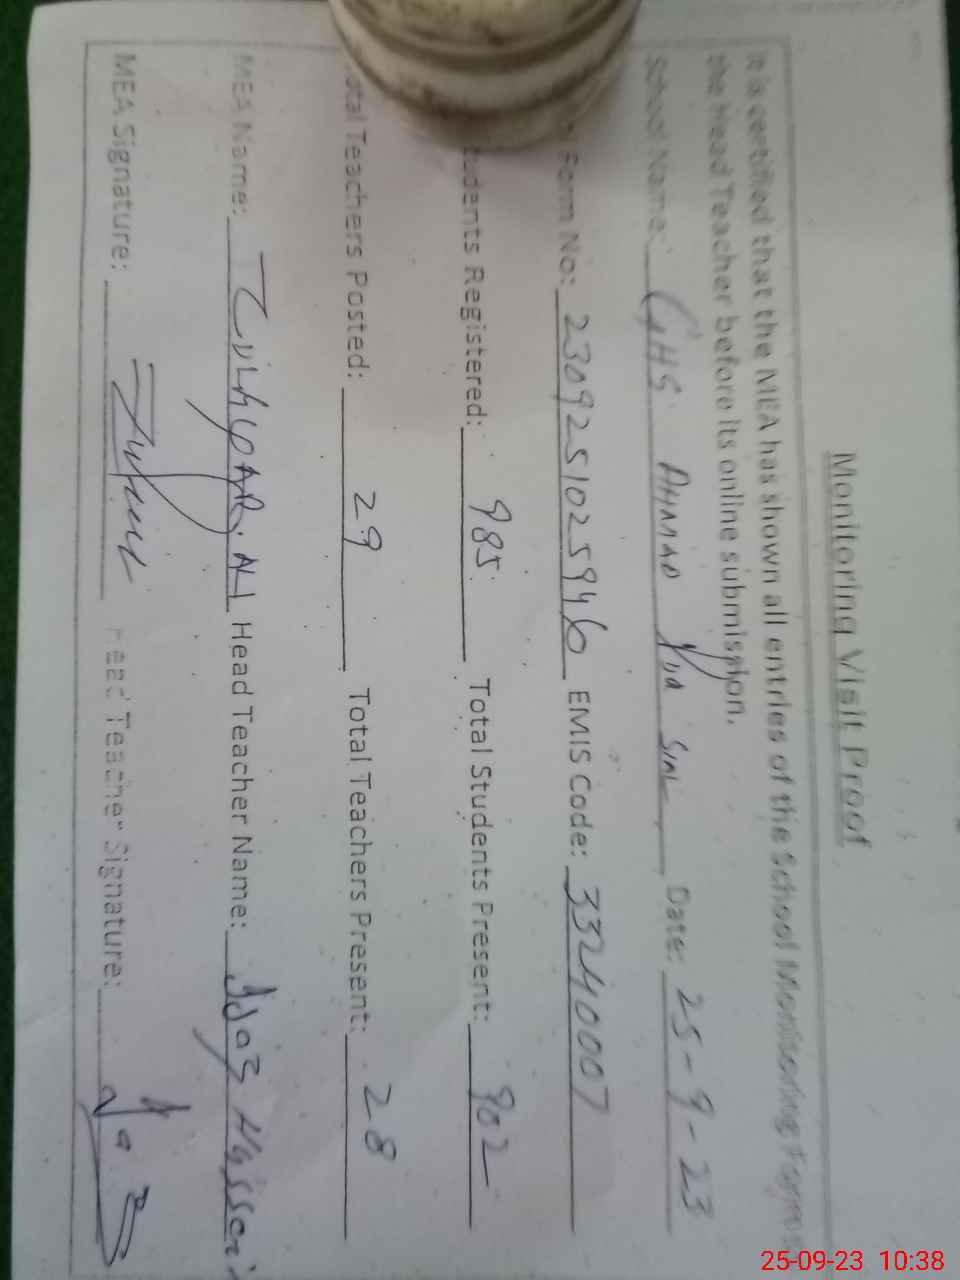 Monitoring Visit Proof
It is certified that the MEA has shown all entries of the School Monitoring Form to
the Head Teacher before its online submission.
School Name: GHS AHMAD Pur SIAL Date: 25-9-23
Form No: 23092510259446 EMIS Code: 33240007
tudents Registered: 985 Total Students Present: 902
otal Teachers Posted: 29 Total Teachers Present: 28
MEA Name: ZULHFQAR. ALI Head Teacher Name: Ijaz Hussen
MEA Signature: Head Teacher Signature: Ijaz
25-09-23 10:38